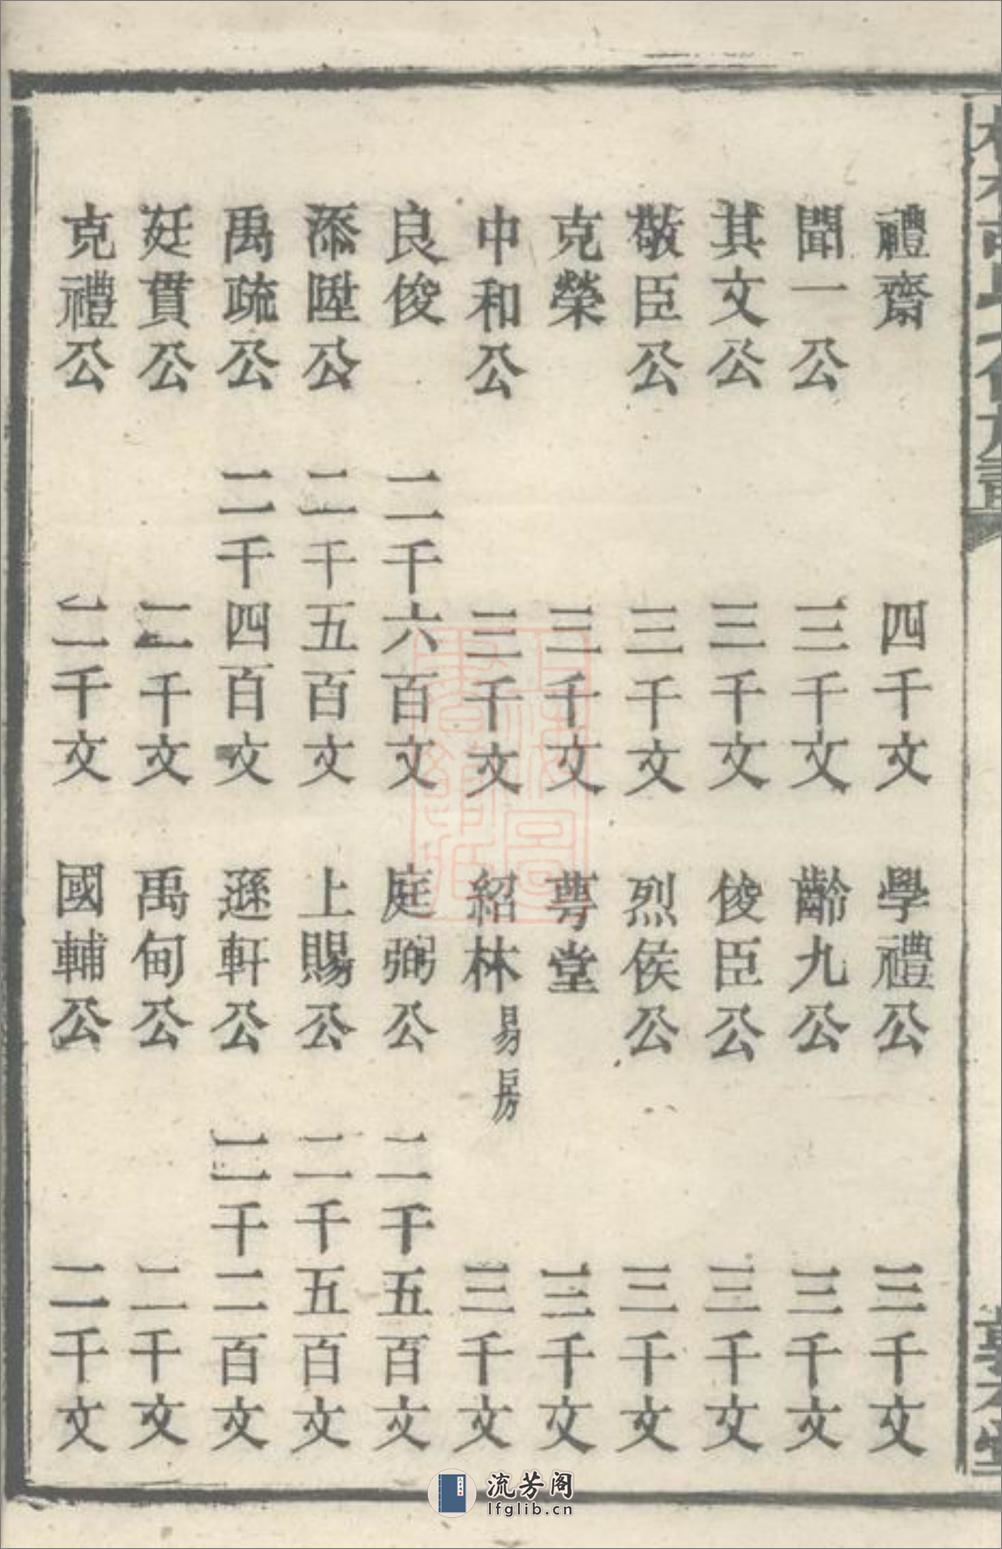 禮齋 四千文 學禮公 三千文
聞一公 三千文 齡九公 三千文
其文公 三千文 俊臣公 三千文
敬臣公 三千文 烈侯公 三千文
克榮 三千文 蕚堂 三千文
中和公 三千文 紹林易房 三千文
良俊 二千六百文 庭弼公 二千五百文
添陞公 二千五百文 上賜公 二千五百文
禹疏公 二千四百文 遜軒公 二千二百文
廷貫公 二千文 禹甸公 二千文
克禮公 二千文 國輔公 二千文
流芳阁
lfglib.cn